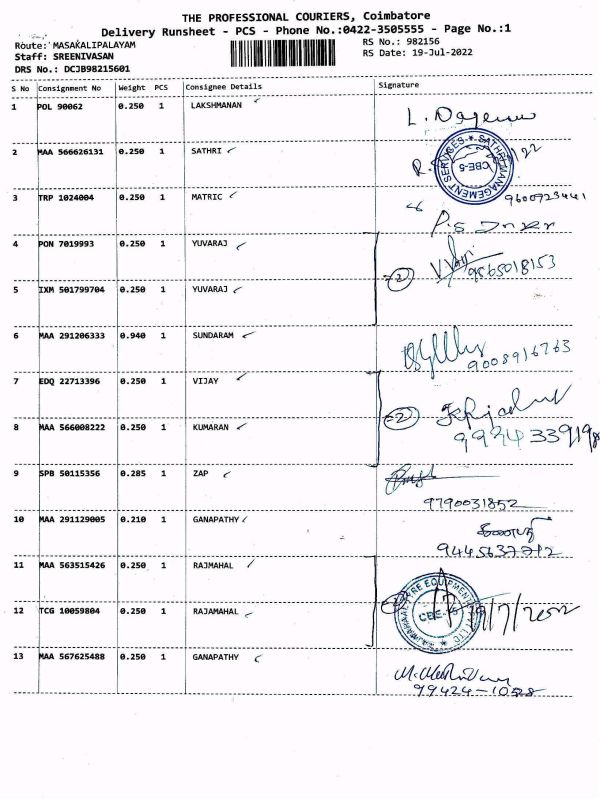 THE PROFESSIONAL COURIERS, Coimbatore
Delivery Runsheet - PCS - Phone No.:0422-3505555 - Page No.:1
Route: MASAKALIPALAYAM RS No.: 982156
Staff: SREENIVASAN RS Date: 19-Jul-2022
DRS No.: DCJB98215601
S No Consignment No Weight PCS Consignee Details Signature
1 POL 90062 0.250 1 LAKSHMANAN
2 MAA 566626131 0.250 1 SATHRI
SATHRI MANAGEMENT SERVICES
CBE-5
3 TRP 1024004 0.250 1 MATRIC 9600723441
4 PON 7019993 0.250 1 YUVARAJ =2 9865018153
5 IXM 501799704 0.250 1 YUVARAJ
6 MAA 291206333 0.940 1 SUNDARAM
9008916763
7 EDQ 22713396 0.250 1 VIJAY
8 MAA 566008222 0.250 1 KUMARAN =2
9 SPB 50115356 0.285 1 ZAP
9790031852
10 MAA 291129005 0.210 1 GANAPATHY
9445637712
11 MAA 563515426 0.250 1 RAJMAHAL
12 TCG 10059804 0.250 1 RAJAMAHAL 19/7/2022
13 MAA 567625488 0.250 1 GANAPATHY
99424-1028